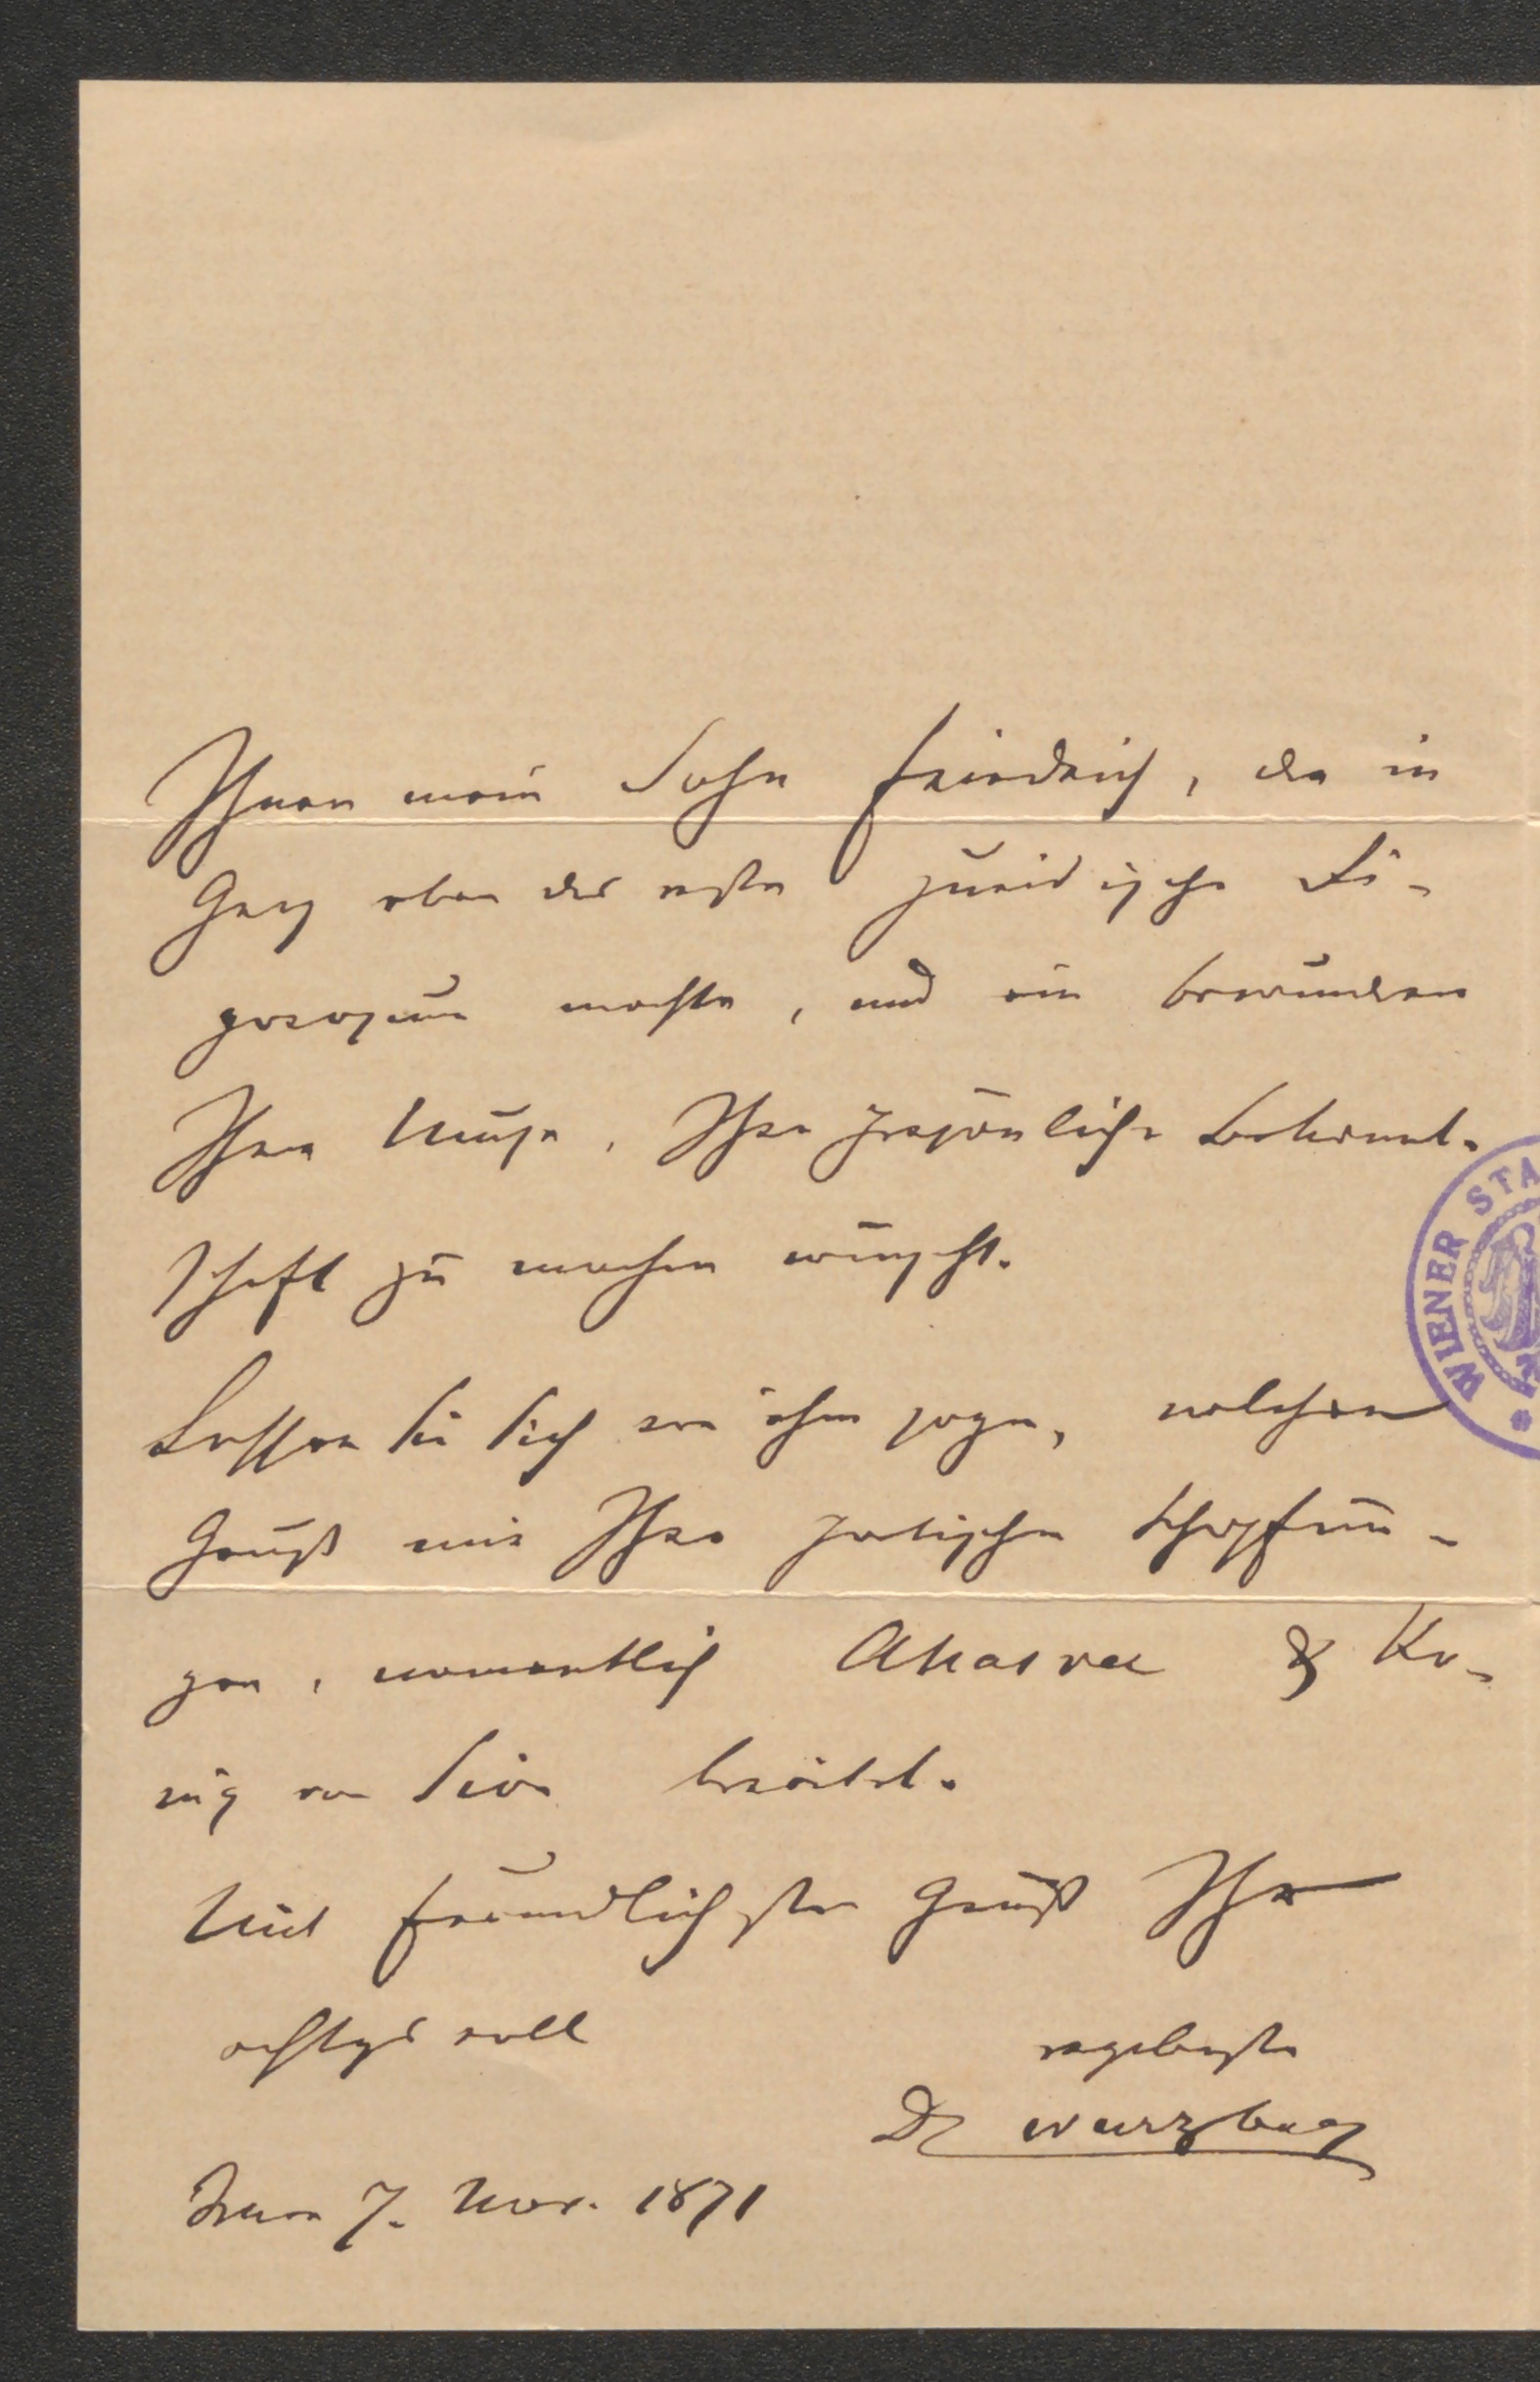 Ihnen mein Sohn Friedrich, der in
Graz eben das erste juridische Ri-
gorosum machte, und ein Bewunderer
Ihrer Muse, Ihre persönliche Bekannt-
schaft zu machen wünscht.
Lassen Sie Sich von ihm sagen, welchen
Genuß mir Ihre poetischen Schöpfun-
gen, namentlich Ahasver & Kö-
nig von Sion bereitet.
Mit freundlichstem Gruß Ihr
achtungsvoll
ergebenster
Dr Wurzbach
7. Nov. 1871
WIENER STA